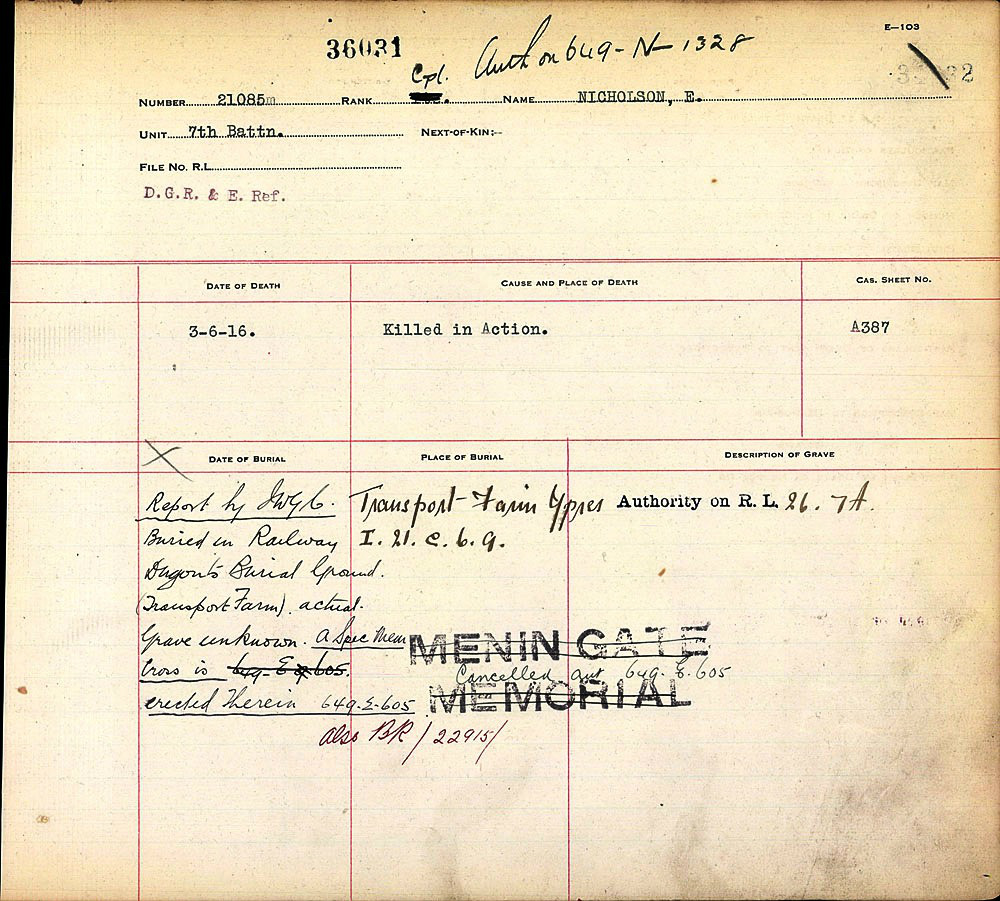 E-103
36031 Auth on 649-N-1328
Cpl.
NUMBER 21085 RANK NAME NICHOLSON, E.
UNIT 7th Battn. NEXT-OF-KIN:-
FILE NO. R.L.
D.G.R. & E. Ref.
DATE OF DEATH CAUSE AND PLACE OF DEATH CAS. SHEET NO.
3-6-16. Killed in Action. A387
DATE OF BURIAL PLACE OF BURIAL DESCRIPTION OF GRAVE
Report by I.W.G.C. Transport Farm Ypres Authority on R. L. 26. 7A.
Buried in Railway I. 21. c. 6. 9.
Dugouts Burial Ground.
(Transport Farm). actual.
Grave unknown. A Spec Mem
MENIN GATE
Cross is 649-E-605.
Cancelled aut 649. E. 605
MEMORIAL
erected Therein 649-E-605
also BR/22915/